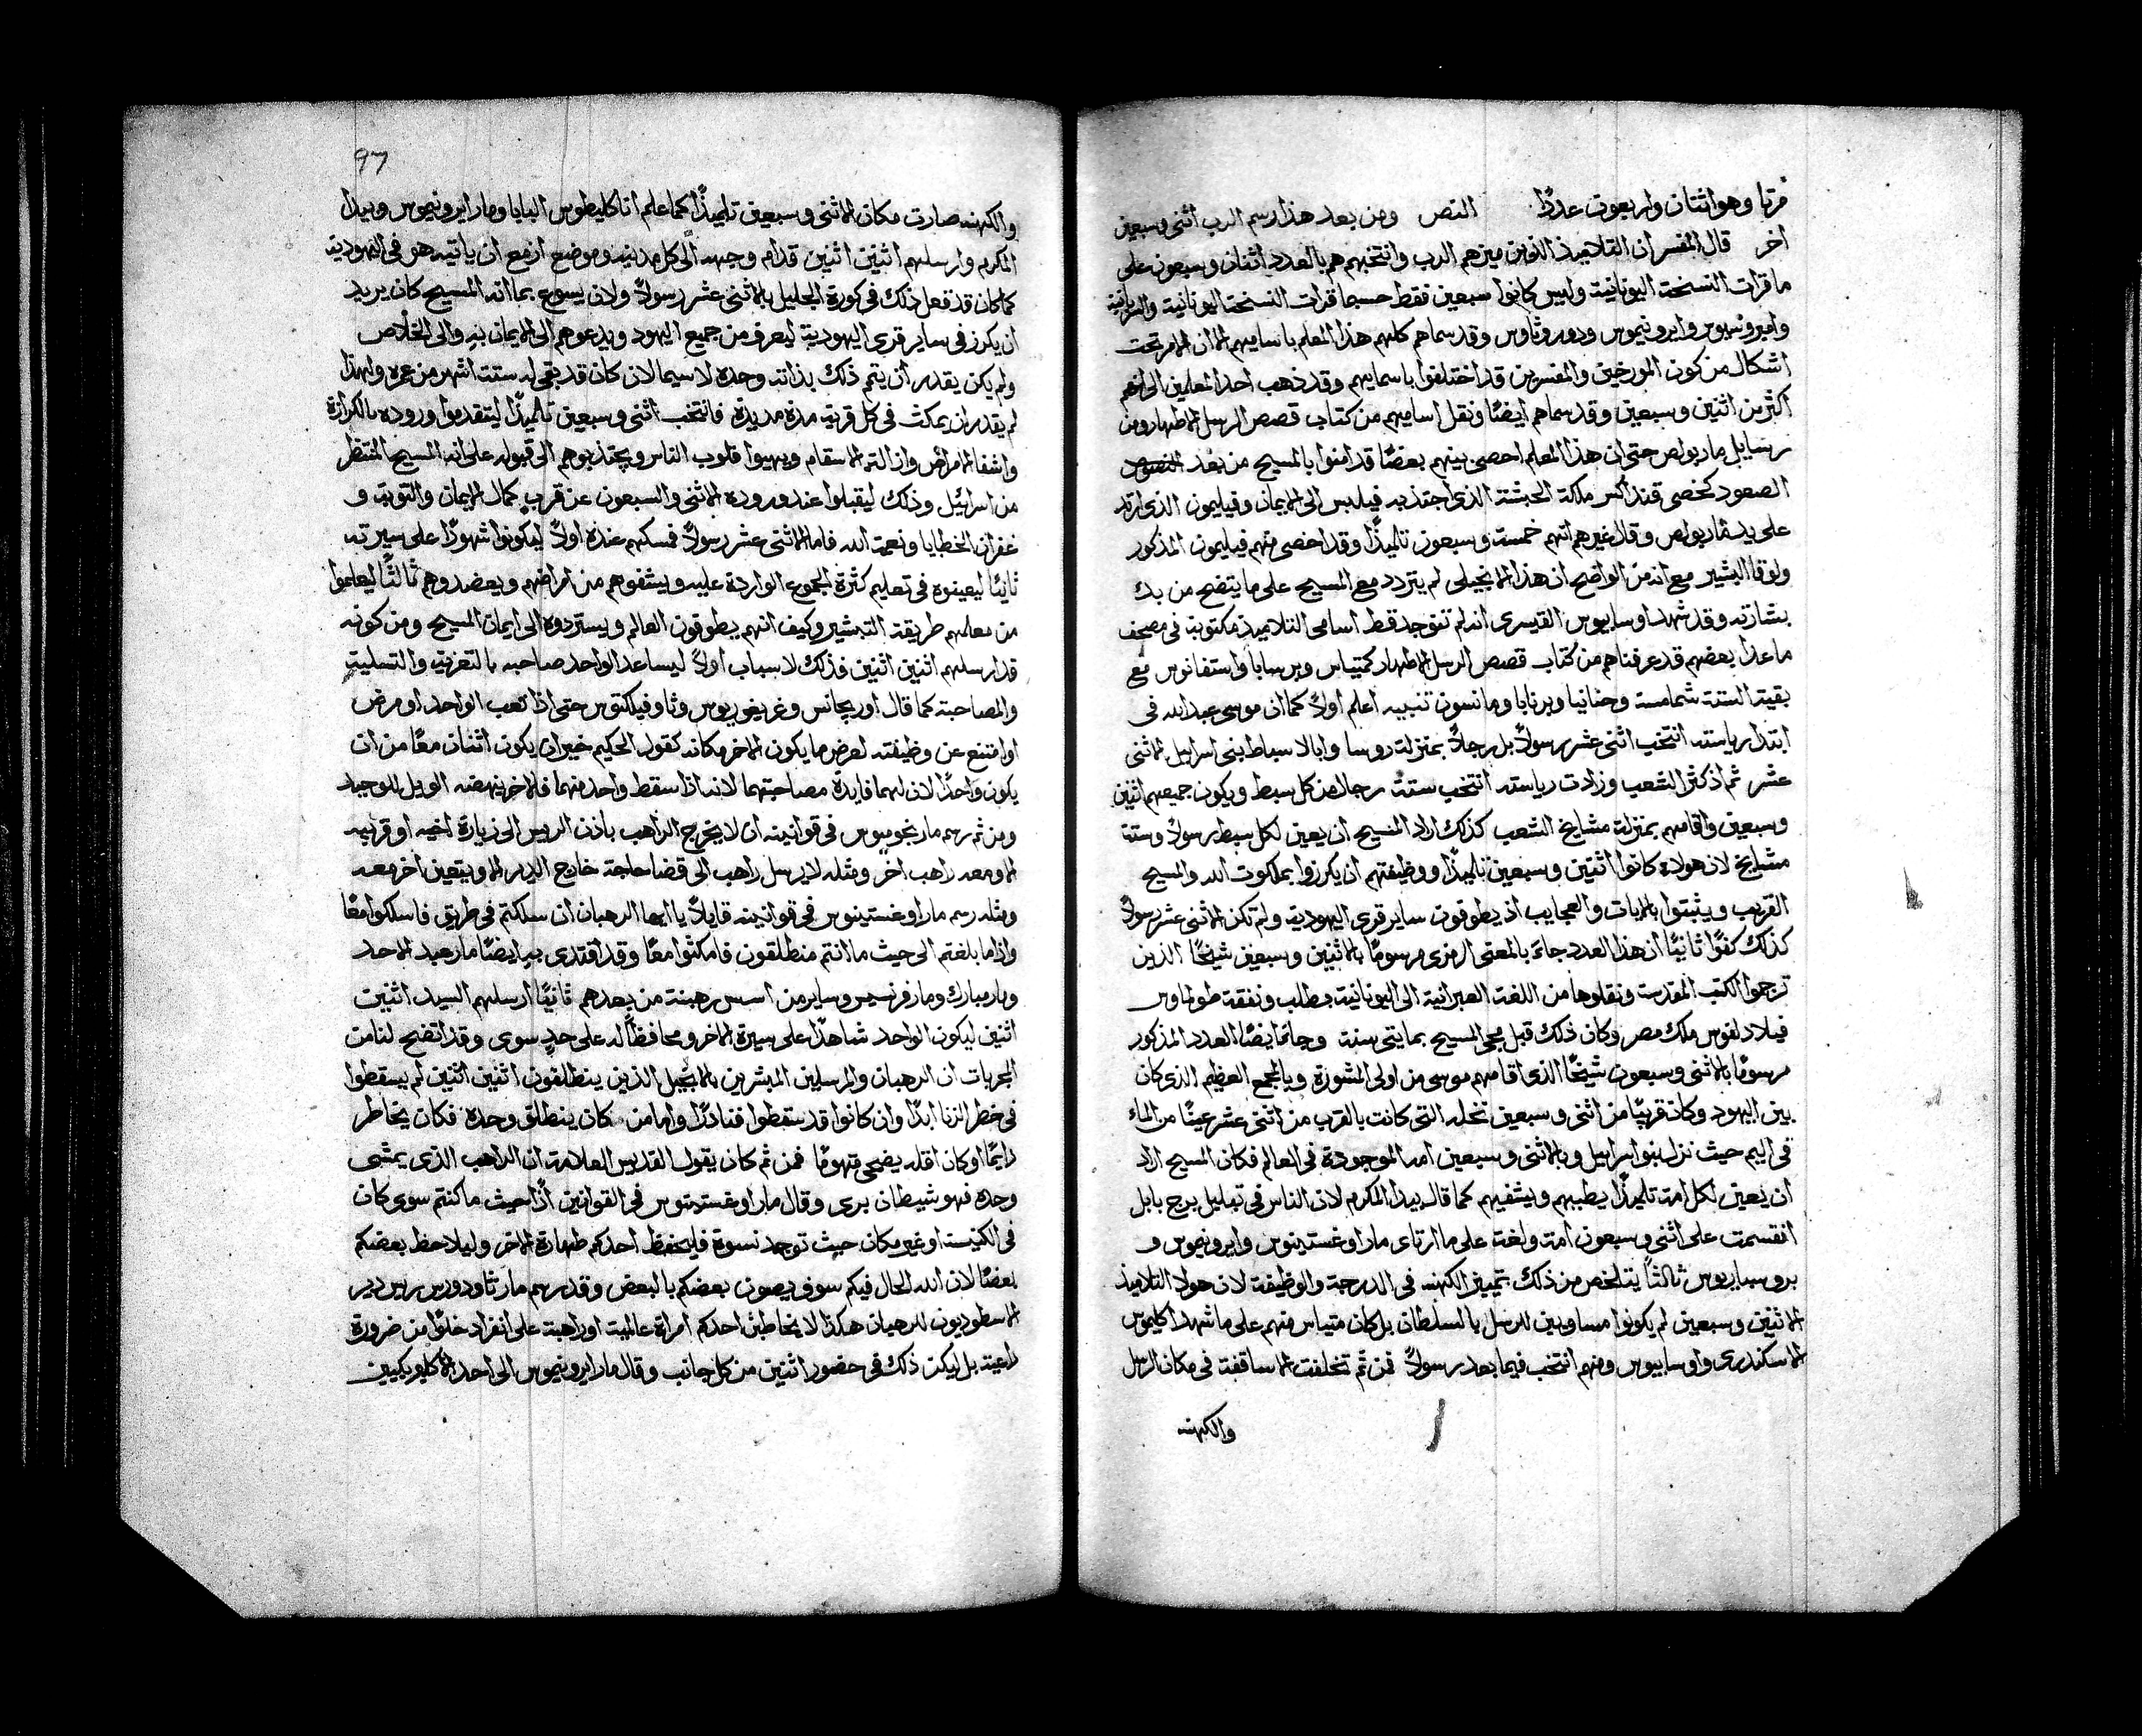 مرتبا وهو اثنتان واربعون عددًا. النص ومن بعد هذا رسم الرب اثنى وسبعين
اخر قال المفسر ان التلاميذ الذين ميزهم الرب وانتخبهم هم بالعدد اثنان وسبعون على
ما قرات النسخة اليونانية وليس كانوا سبعين فقط حسبما قرات النسخة اليونانية والسريانية
وامبروسيوس وايرونيموس ودوروثاوس وقد سماهم كلهم هذا المعلم باساميهم الا ان الامر تحت
اشكال من كون المورخين والمفسرين قد اختلفوا باسمايهم وقد ذهب احد المعلمين الى انهم
اكثر من اثنين وسبعين وقد سماهم ايضًا ونقل اساميهم من كتاب قصص الرسل الاطهار ومن
رسايل مار بولص حتى ان هذا المعلم احصى بينهم بعضًا قد امنوا بالمسيح من بعد
الصعود كخصى قنداكس ملكة الحبشة الذى اجتذبه فيلبس الى الايمان وفيليمون الذى ارتد
على يد مار بولص وقال غيرهم انهم خمسة وسبعون تلميذًا وقد احصى منهم فيليمون المذكور
ولوقا البشير مع انه من الواضح ان هذا الانجيلى لم يتردد مع المسيح على ما يتضح من بدء
بشارته وقد شهد اوسابيوس القيسرى انه لم تتوجد قط اسامى التلاميذ مكتوبة فى مصحف
ما عدا بعضهم قد عرفناهم من كتاب قصص الرسل الاطهار كمتياس وبرسابا واستفانوس مع
بقية الستة شمامسة وحنانيا وبرنابا ومانسون تنبيه اعلم اولاً كما ان موسى عبد الله فى
ابتدا رياسته انتخب اثنى عشر رسولاً بل رجلاً بمنزلة روسا وابا لاسباط بنى اسراييل الاثنى
عشر ثم اذ كثر الشعب وزادت رياسته انتخب ستة رجال من كل سبط ويكون جميعهم اثنين
وسبعين واقامهم بمنزلة مشايخ الشعب كذلك اراد المسيح ان يعين لكل سبط رسولاً وستة
مشايخ لان هولاء كانوا اثنين وسبعين تلميذًا ووظيفتهم ان يكرزوا بملكوت الله والمسيح
القريب ويثبتوا بالايات والعجايب اذ يطوفون ساير قرى اليهودية ولم تكن الاثنى عشر رسولاً
كذلك كفوًا ثانيًا ان هذا العدد جاء بالمعنى الرمزى مرسومًا بالاثنين وسبعين شيخًا الذين
ترجموا الكتب المقدسة ونقلوها من اللغة العبرانية الى اليونانية بطلب ونفقة طولماوس
فيلادلفوس ملك مصر وكان ذلك قبل مجى المسيح بمايتى سنة وجا ايضًا العدد المذكور
مرسومًا بالاثنى وسبعون شيخًا الذى اقامهم موسى من اولى المشورة وبالمجمع العظيم الذى كان
بين اليهود وكان قريبًا من اثنى وسبعين نخله التى كانت بالقرب من اثنتى عشر عينًا من الماء
فى اليم حيث نزل بنوا اسراييل وبالاثنى وسبعين امه الموجودة فى العالم فكان المسيح اراد
ان يعين لكل امة تلميذًا يطببهم ويشفيهم كما قال بيدا المكرم لان الناس فى تبليل برج بابل
انقسمت على اثنى وسبعون امة ولغة على ما ارتاى مار اوغستينوس وايرونيموس و
بروسباريوس ثالثًا يتلخص من ذلك تمييز الكهنه فى الدرجة والوظيفة لان هولا التلاميذ
الاثنين وسبعين لم يكونوا مساويين للرسل بالسلطان بل كان متياس منهم على ما شهد اكليموس
الاسكندرى واوسابيوس ومنهم انتخب فيما بعد رسولاً فمن ثم تخلفت الاساقفة فى مكان الرسل
والكهنه
97
والكهنه صارت مكان الاثنى وسبعين تلميذًا كما علم اناكليطوس البابا ومار ايرونيموس وبيدا
المكرم وارسلهم اثنين اثنين قدام وجهه الى كل مدينة وموضع ازمع ان ياتيه هو فى اليهودية
كما كان قد فعل ذلك فى كورة الجليل بالاثنى عشر رسولاً ولان يسوع بما انه المسيح كان يريد
ان يكرز فى ساير قرى اليهودية ليعرف من جميع اليهود ويدعوهم الى الايمان به والى الخلاص
ولم يكن يقدر ان يتم ذلك بذاته وحده لا سيما لان كان قد بقى له ستة اشهر من عمره ولهذا
لم يقدر ان يمكث فى كل قرية مدة مديدة فانتخب اثنى وسبعين تلميذًا ليتقدموا وروده بالكرازة
واشفا الامراض وازالة الاسقام ويهيوا قلوب الناس ويجتذبوهم الى قبوله على انه المسيح المنتظر
من اسراييل وذلك ليقبلوا عند وروده الاثنى والسبعون عن قرب كمال الايمان والتوبة و
غفران الخطايا ونعمة الله فاما الاثنى عشر رسولاً فمسكهم عنده اولاً ليكونوا شهودًا على سيرته
ثانيًا ليعينوه فى تعليم كثرة الجموع الواردة عليه ويشفوهم من امراضهم ويعضدوهم ثالثًا ليعلموا
من معلمهم طريقة التبشير وكيف انهم يطوفون العالم ويستردوه الى ايمان المسيح ومن كونه
قد ارسلهم اثنين اثنين فذلك لاسباب اولاً ليساعد الواحد صاحبه بالتعزية والتسلية
والمصاحبة كما قال اوريجانس وغريغوريوس وثاوفيلكتوس حتى اذا تعب الواحد او مرض
او امتنع عن وظيفته لعرض ما يكون الاخر مكانه كقول الحكيم خير ان يكون اثنان معًا من ان
يكون واحدًا لان لهما فايدة مصاحبتهما لانه اذا سقط واحد منهما فالاخر ينهضه الويل للوحيد
ومن ثم رسم مار بخوميوس فى قوانينه ان لا يخرج الراهب باذن الريس الى زيارة اخيه او قريبه
الا ومعه راهب اخر ومثله لا يرسل راهب الى قضا حاجة خارج الدير الا ويتعين اخر معه
ومثله رسم مار اوغستينوس فى قوانينه قايلاً يا ايها الرهبان ان سلكتم فى طريق فاسلكوا معًا
واذا ما بلغتم الى حيث ما انتم منطلقون فامكثوا معًا وقد اقتدى به ايضًا مار عبد الاحد
ومار مبارك ومار فرنسيس وساير من اسس رهبنة من بعدهم ثانيًا ارسلهم السيد اثنين
اثنين ليكون الواحد شاهدًا على سيرة الاخر ومحافظًا له على حدٍ سوى وقد اتضح لنا من
المجربات ان الرهبان والمرسلين المبشرين بالانجيل الذين ينطلقون اثنين اثنين لم يسقطوا
فى خطر الزنا ابدًا وان كانوا قد سقطوا فنادرًا واما من كان ينطلق وحده فكان يخاطر
دايمًا او كان اقله يضحى متهومًا فمن ثم كان يقول القديس العلامة ان الراهب الذى يمشى
وحده فهو شيطان برى وقال مار اوغستينوس فى القوانين اذًا حيث ما كنتم سوى كان
فى الكنيسة او غير مكان حيث توجد نسوة فليحفظ احدكم طهارة الاخر وليلاحظ بعضكم
بعضًا لان الله الحال فيكم سوف يصون بعضكم بالبعض وقد رسم مار ثاودورس ريس دير
الاسطوديون للرهبان هكذا لا يخاطبن احدكم امراة عالمية او راهبة على انفراد خلوًا من ضرورة
داعية بل ليكن ذلك فى حضور اثنين من كل جانب وقال مار ايرونيموس الى احد الاكليريكيين